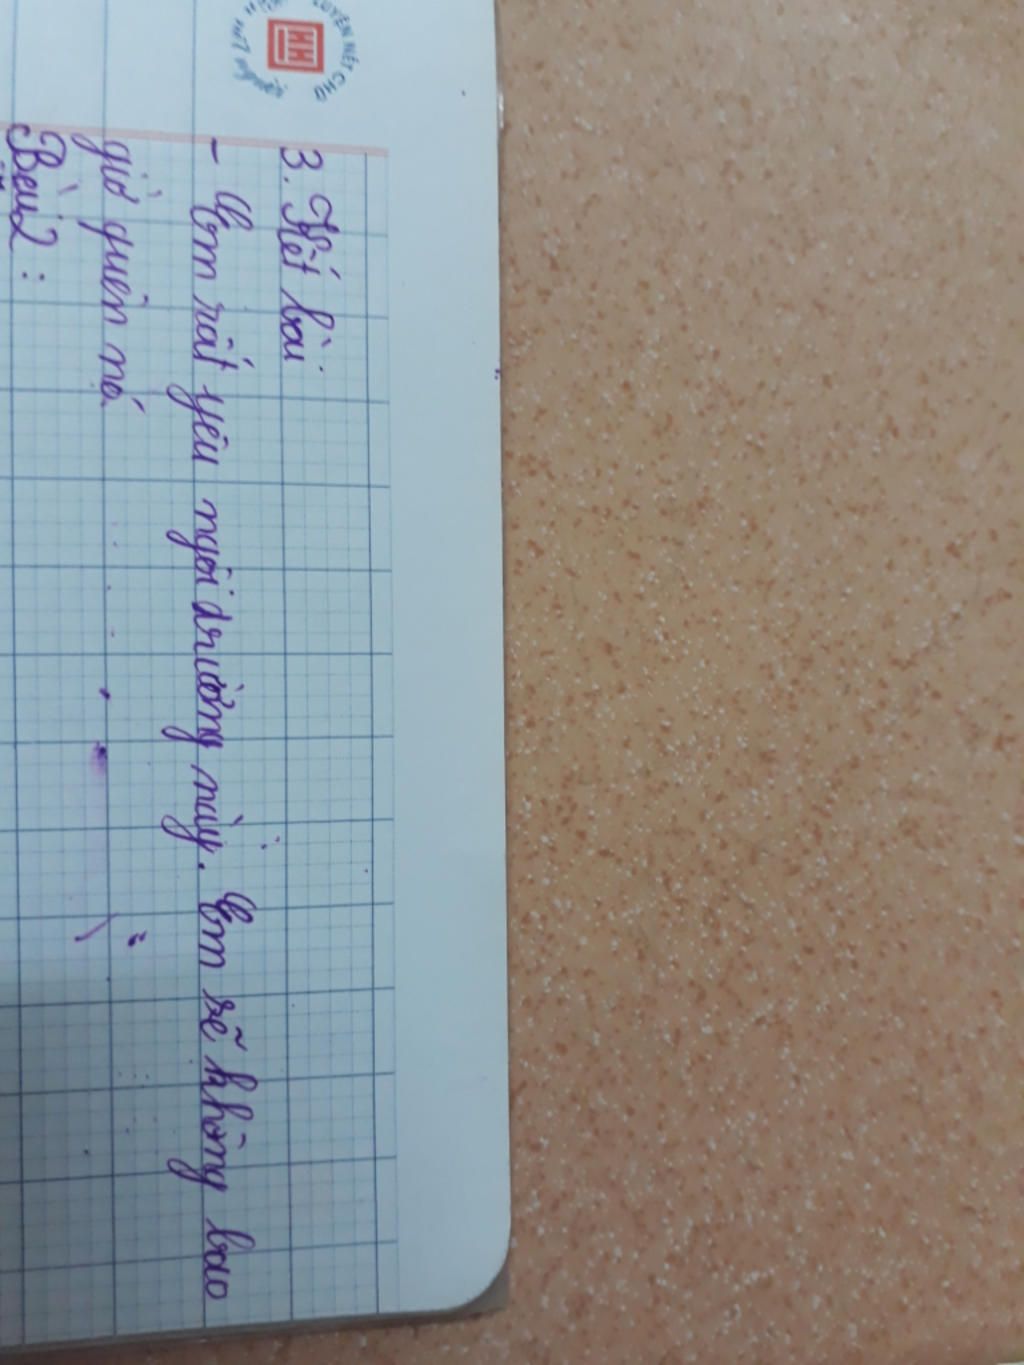 LUYỆN NÉT CHỮ
3. Kết bài
- Em rất yêu ngôi trường này. Em sẽ không bao
giờ quên nó
Bài 2: